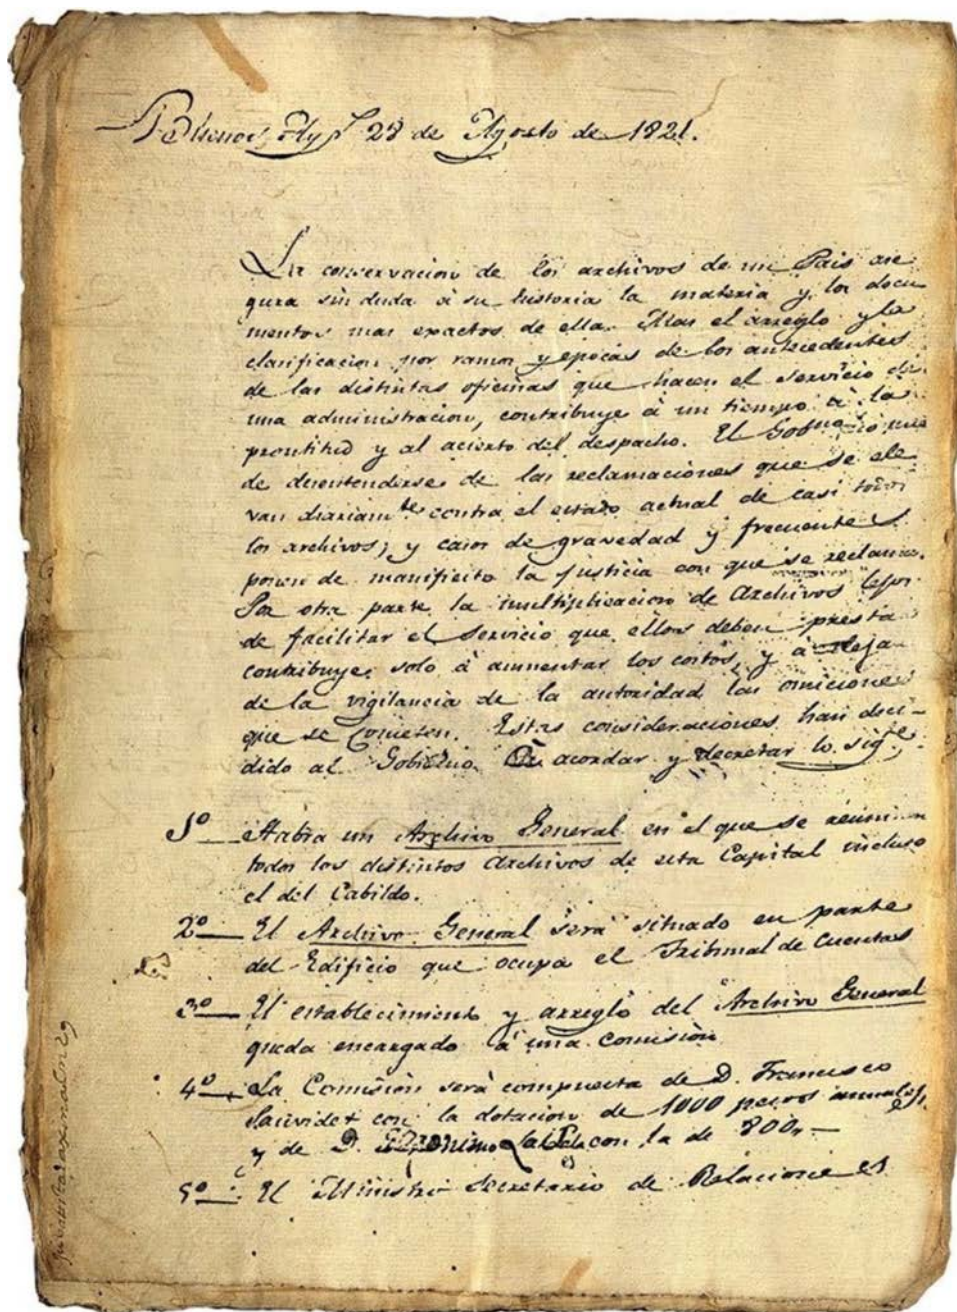 Buenos Ay.s 28 de Agosto de 1821.
La conservacion de los archivos de un Pais ase
gura sin duda á su historia la materia y los docu
mentos mas exactos de ella. Mas el arreglo y la
clasificacion por ramos y epocas de los antecedentes
de las distintas oficinas que hacen el servicio de
una administracion, contribuye á un tiempo a la
prontitud y al acierto del despacho. El Gob.no no pue
de desentenderse de las reclamaciones que se ele
van diariam.te contra el estado actual de casi todos
los archivos; y casos de gravedad y frecuentes
ponen de manifiesto la justicia con que se reclama.
Por otra parte la multiplicacion de Archivos lejos
de facilitar el servicio que ellos deben presta
contribuye solo à aumentar los costos, y á aleja
de la vigilancia de la autoridad las omiciones
que se cometen. Estas consideraciones han deci-
dido al Gobierno à acordar y decretar lo sig.te
1º Habra un Archivo General en el que se reuniran
todos los distintos Archivos de esta Capital incluso
el del Cabildo.
2º El Archivo General será situado en parte
del Edificio que ocupa el Tribunal de Cuentas
3º El establecimiento y arreglo del Archivo General
queda encargado à una comision
4º La Comision será compuesta de D. Francisco
con la dotacion de 1000 pesos annuales,
y de D. con la de 800,,
5º El Ministro Secretario de Relaciones